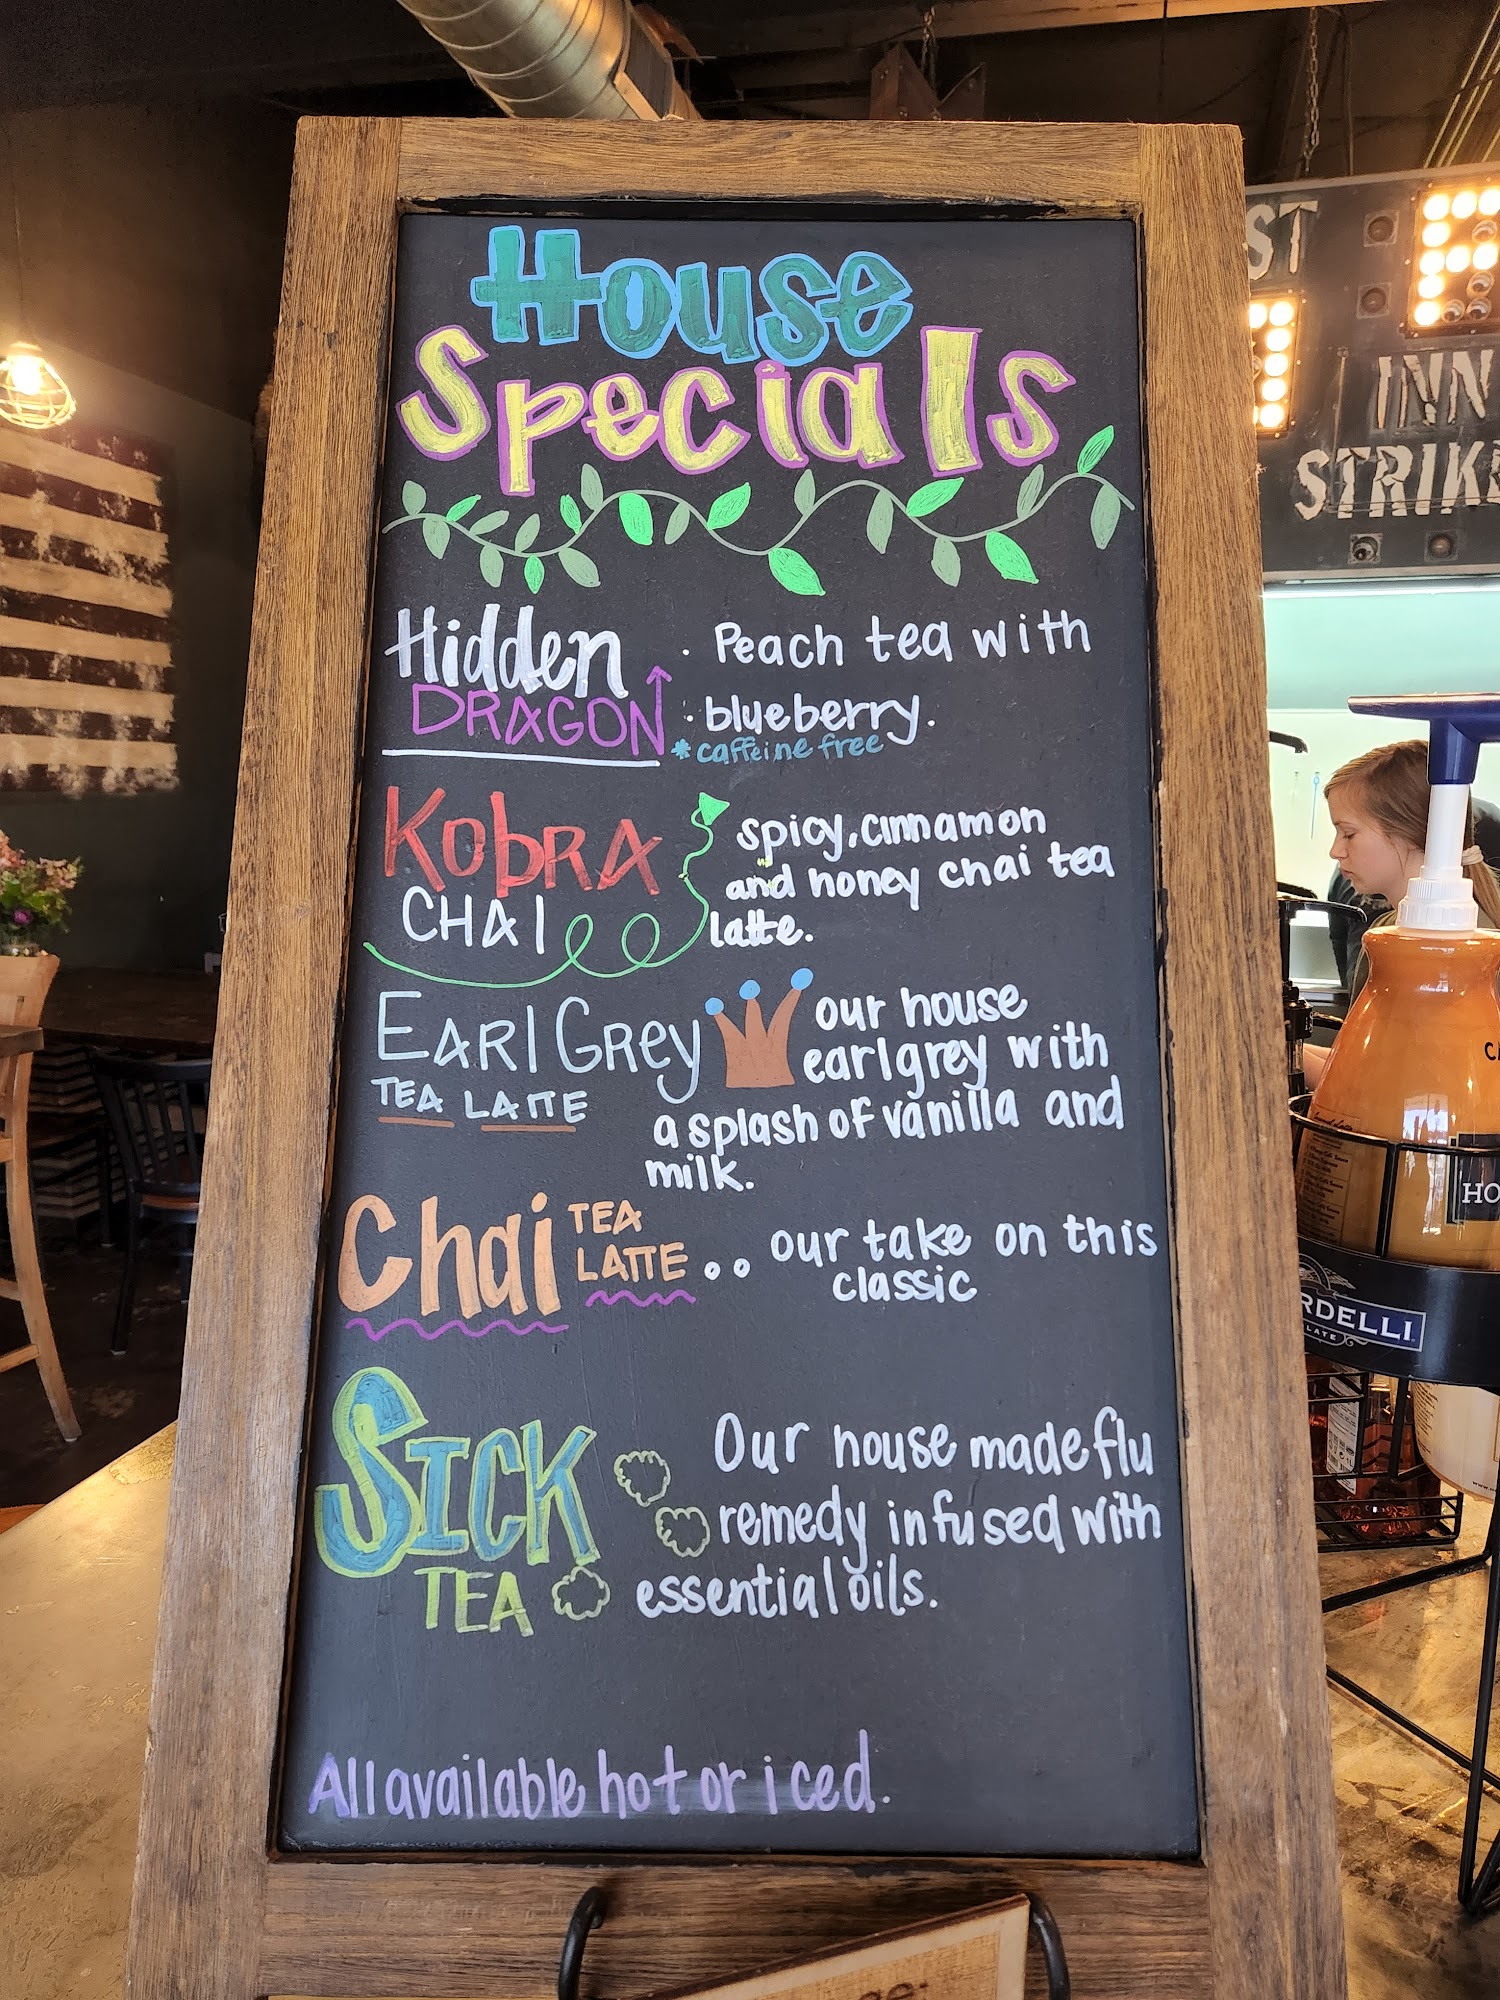 House
Specials
Hidden
DRAGON
· Peach tea with
· blueberry.
*caffeine free
KobRA
CHAI
spicy, cinnamon
and honey chai tea
latte.
EARl GRey
TEA LATTE
our house
earlgrey with
a splash of vanilla and
milk.
Chai TEA
LATTE ..
our take on this
classic
SICK
TEA
Our house made flu
remedy infused with
essential oils.
All available hot or iced.
INN
HO
RDELLI